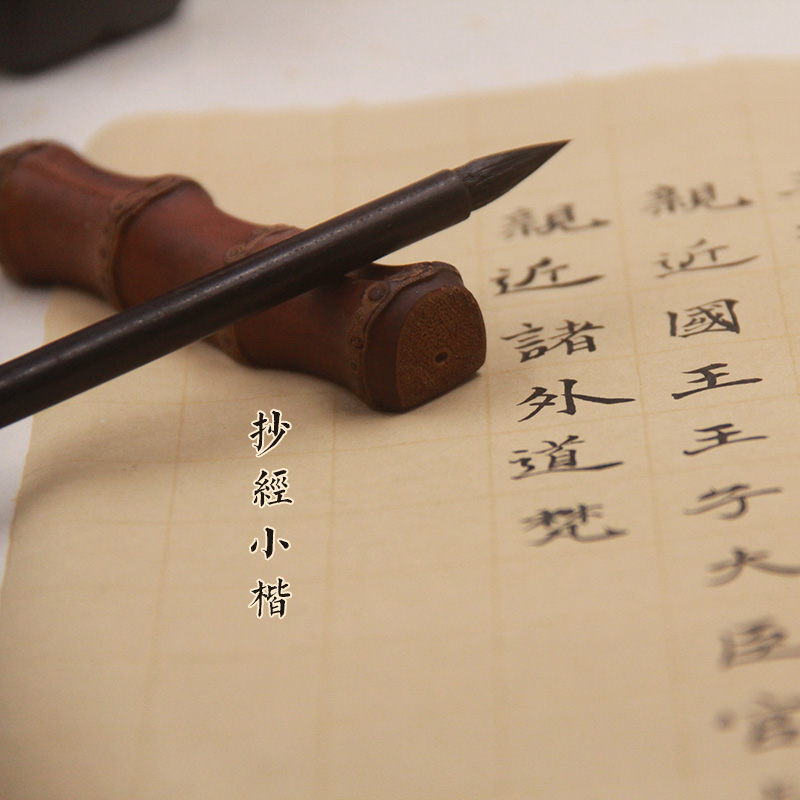 親近國王王子大臣官
親近諸外道梵
抄經小楷